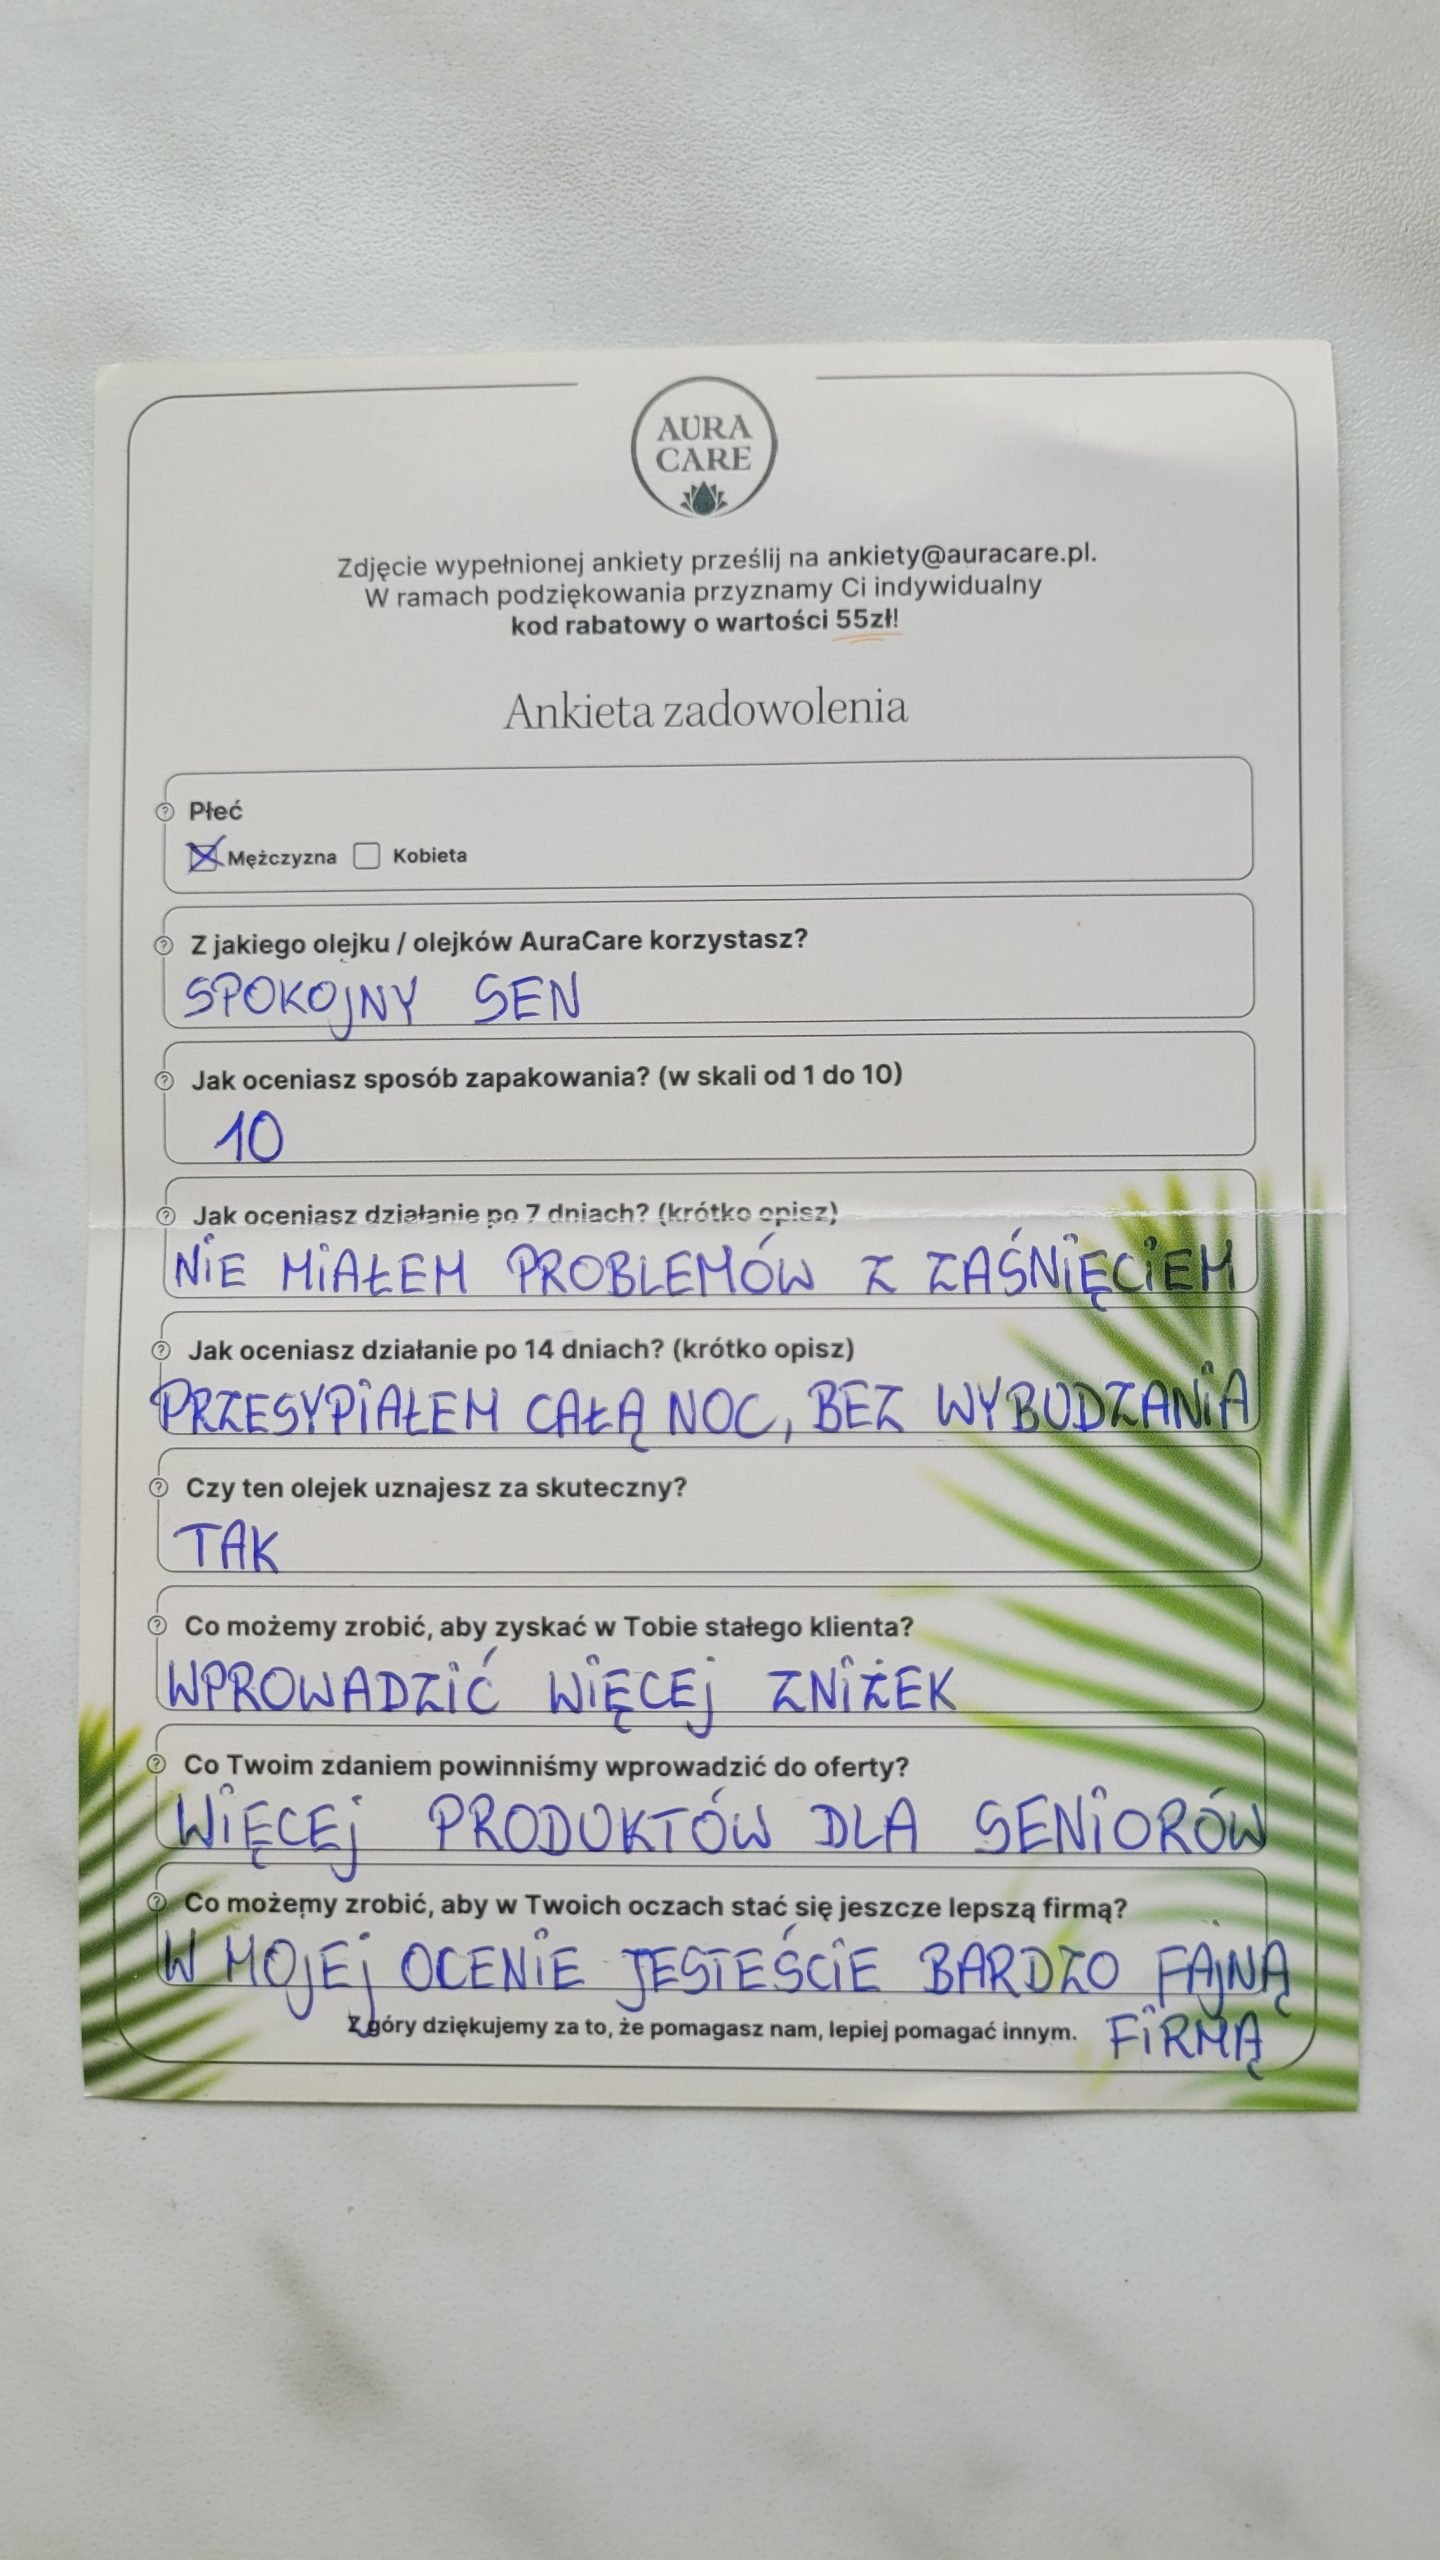 AURA
CARE
Zdjęcie wypełnionej ankiety prześlij na ankiety@auracare.pl.
W ramach podziękowania przyznamy Ci indywidualny
kod rabatowy o wartości 55zł!
Ankieta zadowolenia
Płeć
Mężczyzna Kobieta
Z jakiego olejku / olejków AuraCare korzystasz?
SPOKOJNY SEN
Jak oceniasz sposób zapakowania? (w skali od 1 do 10)
10
Jak oceniasz działanie po 7 dniach? (krótko opisz)
NIE MIAŁEM PROBLEMÓW Z ZAŚNIĘCIEM
Jak oceniasz działanie po 14 dniach? (krótko opisz)
PRZESYPIAŁEM CAŁĄ NOC, BEZ WYBUDZANIA
Czy ten olejek uznajesz za skuteczny?
TAK
Co możemy zrobić, aby zyskać w Tobie stałego klienta?
WPROWADZIĆ WIĘCEJ ZNIŻEK
Co Twoim zdaniem powinniśmy wprowadzić do oferty?
WIĘCEJ PRODUKTÓW DLA SENIORÓW
Co możemy zrobić, aby w Twoich oczach stać się jeszcze lepszą firmą?
W MOJEJ OCENIE JESTEŚCIE BARDZO FAJNĄ
FIRMĄ
Z góry dziękujemy za to, że pomagasz nam, lepiej pomagać innym.